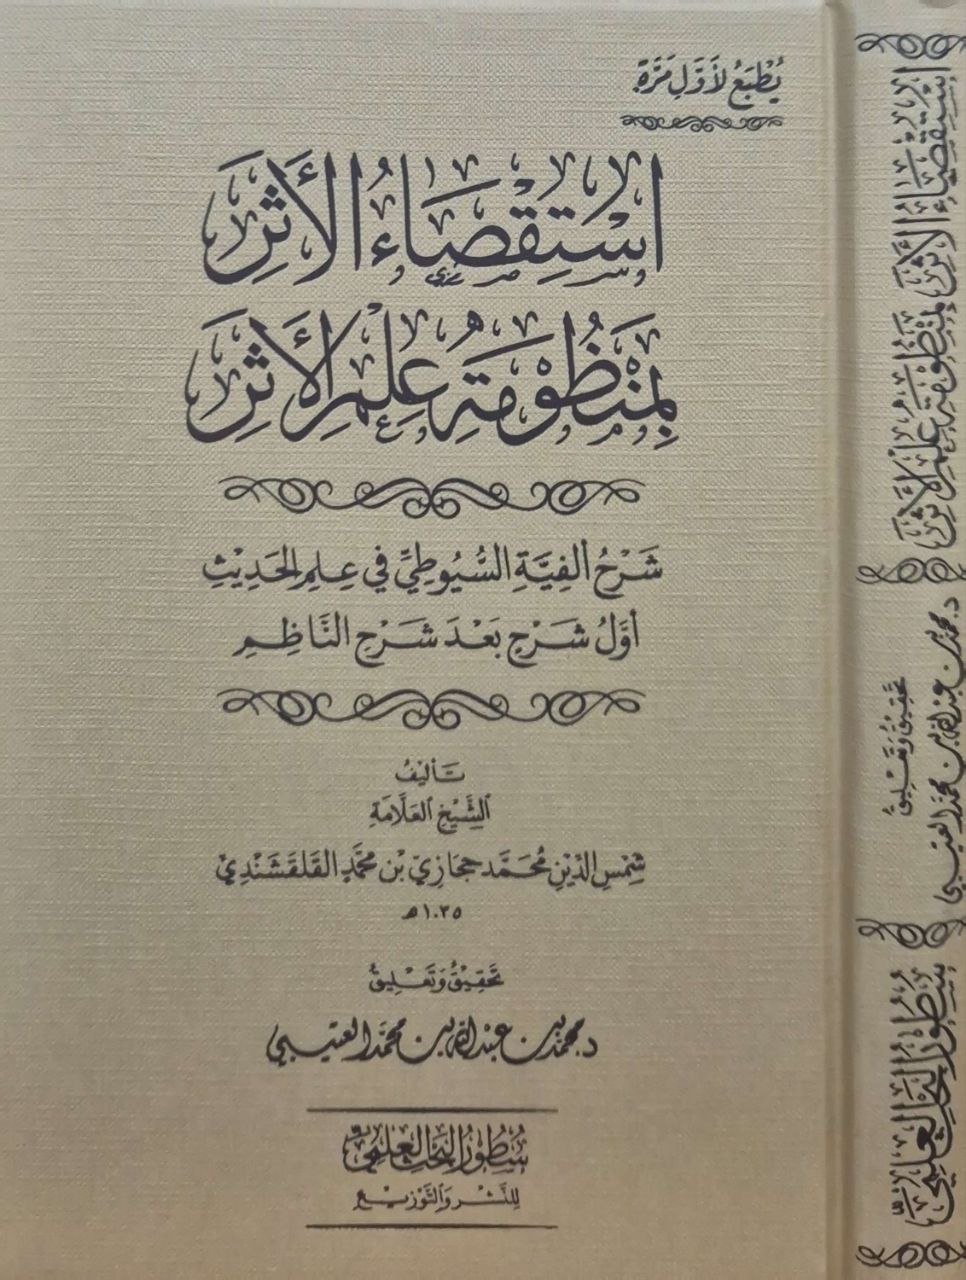 يُطْبَعُ لِأَوَّلِ مَرَّة
اسْتِقْصَاءُ الأَثَرِ
بِمَنْظُومَةِ عِلْمِ الأَثَرِ
شَرْحُ أَلْفِيَّةِ السُّيُوطِيِّ فِي عِلْمِ الحَدِيْثِ
أَوَّلُ شَرْحٍ بَعْدَ شَرْحِ النَّاظِمِ
تَأْلِيْفُ
الشَّيْخِ العَلَّامَةِ
شَمْسِ الدِّيْنِ مُحَمَّد حِجَازِيّ بْنِ مُحَمَّدٍ القَلْقَشَنْدِيّ
١٠٣٥هـ
تَحْقِيْقُ وَتَعْلِيْقُ
د. محمد بن عبدالله بن محمد العتيبي
سُطُورُ البَحْثِ العِلْمِيّ
لِلنَّشْرِ وَالتَّوْزِيْعِ
اسْتِقْصَاءُ الأَثَرِ بِمَنْظُومَةِ عِلْمِ الأَثَرِ
تَحْقِيْقُ وَتَعْلِيْقُ
د. محمد بن عبدالله بن محمد العتيبي
سُطُورُ البَحْثِ العِلْمِيّ